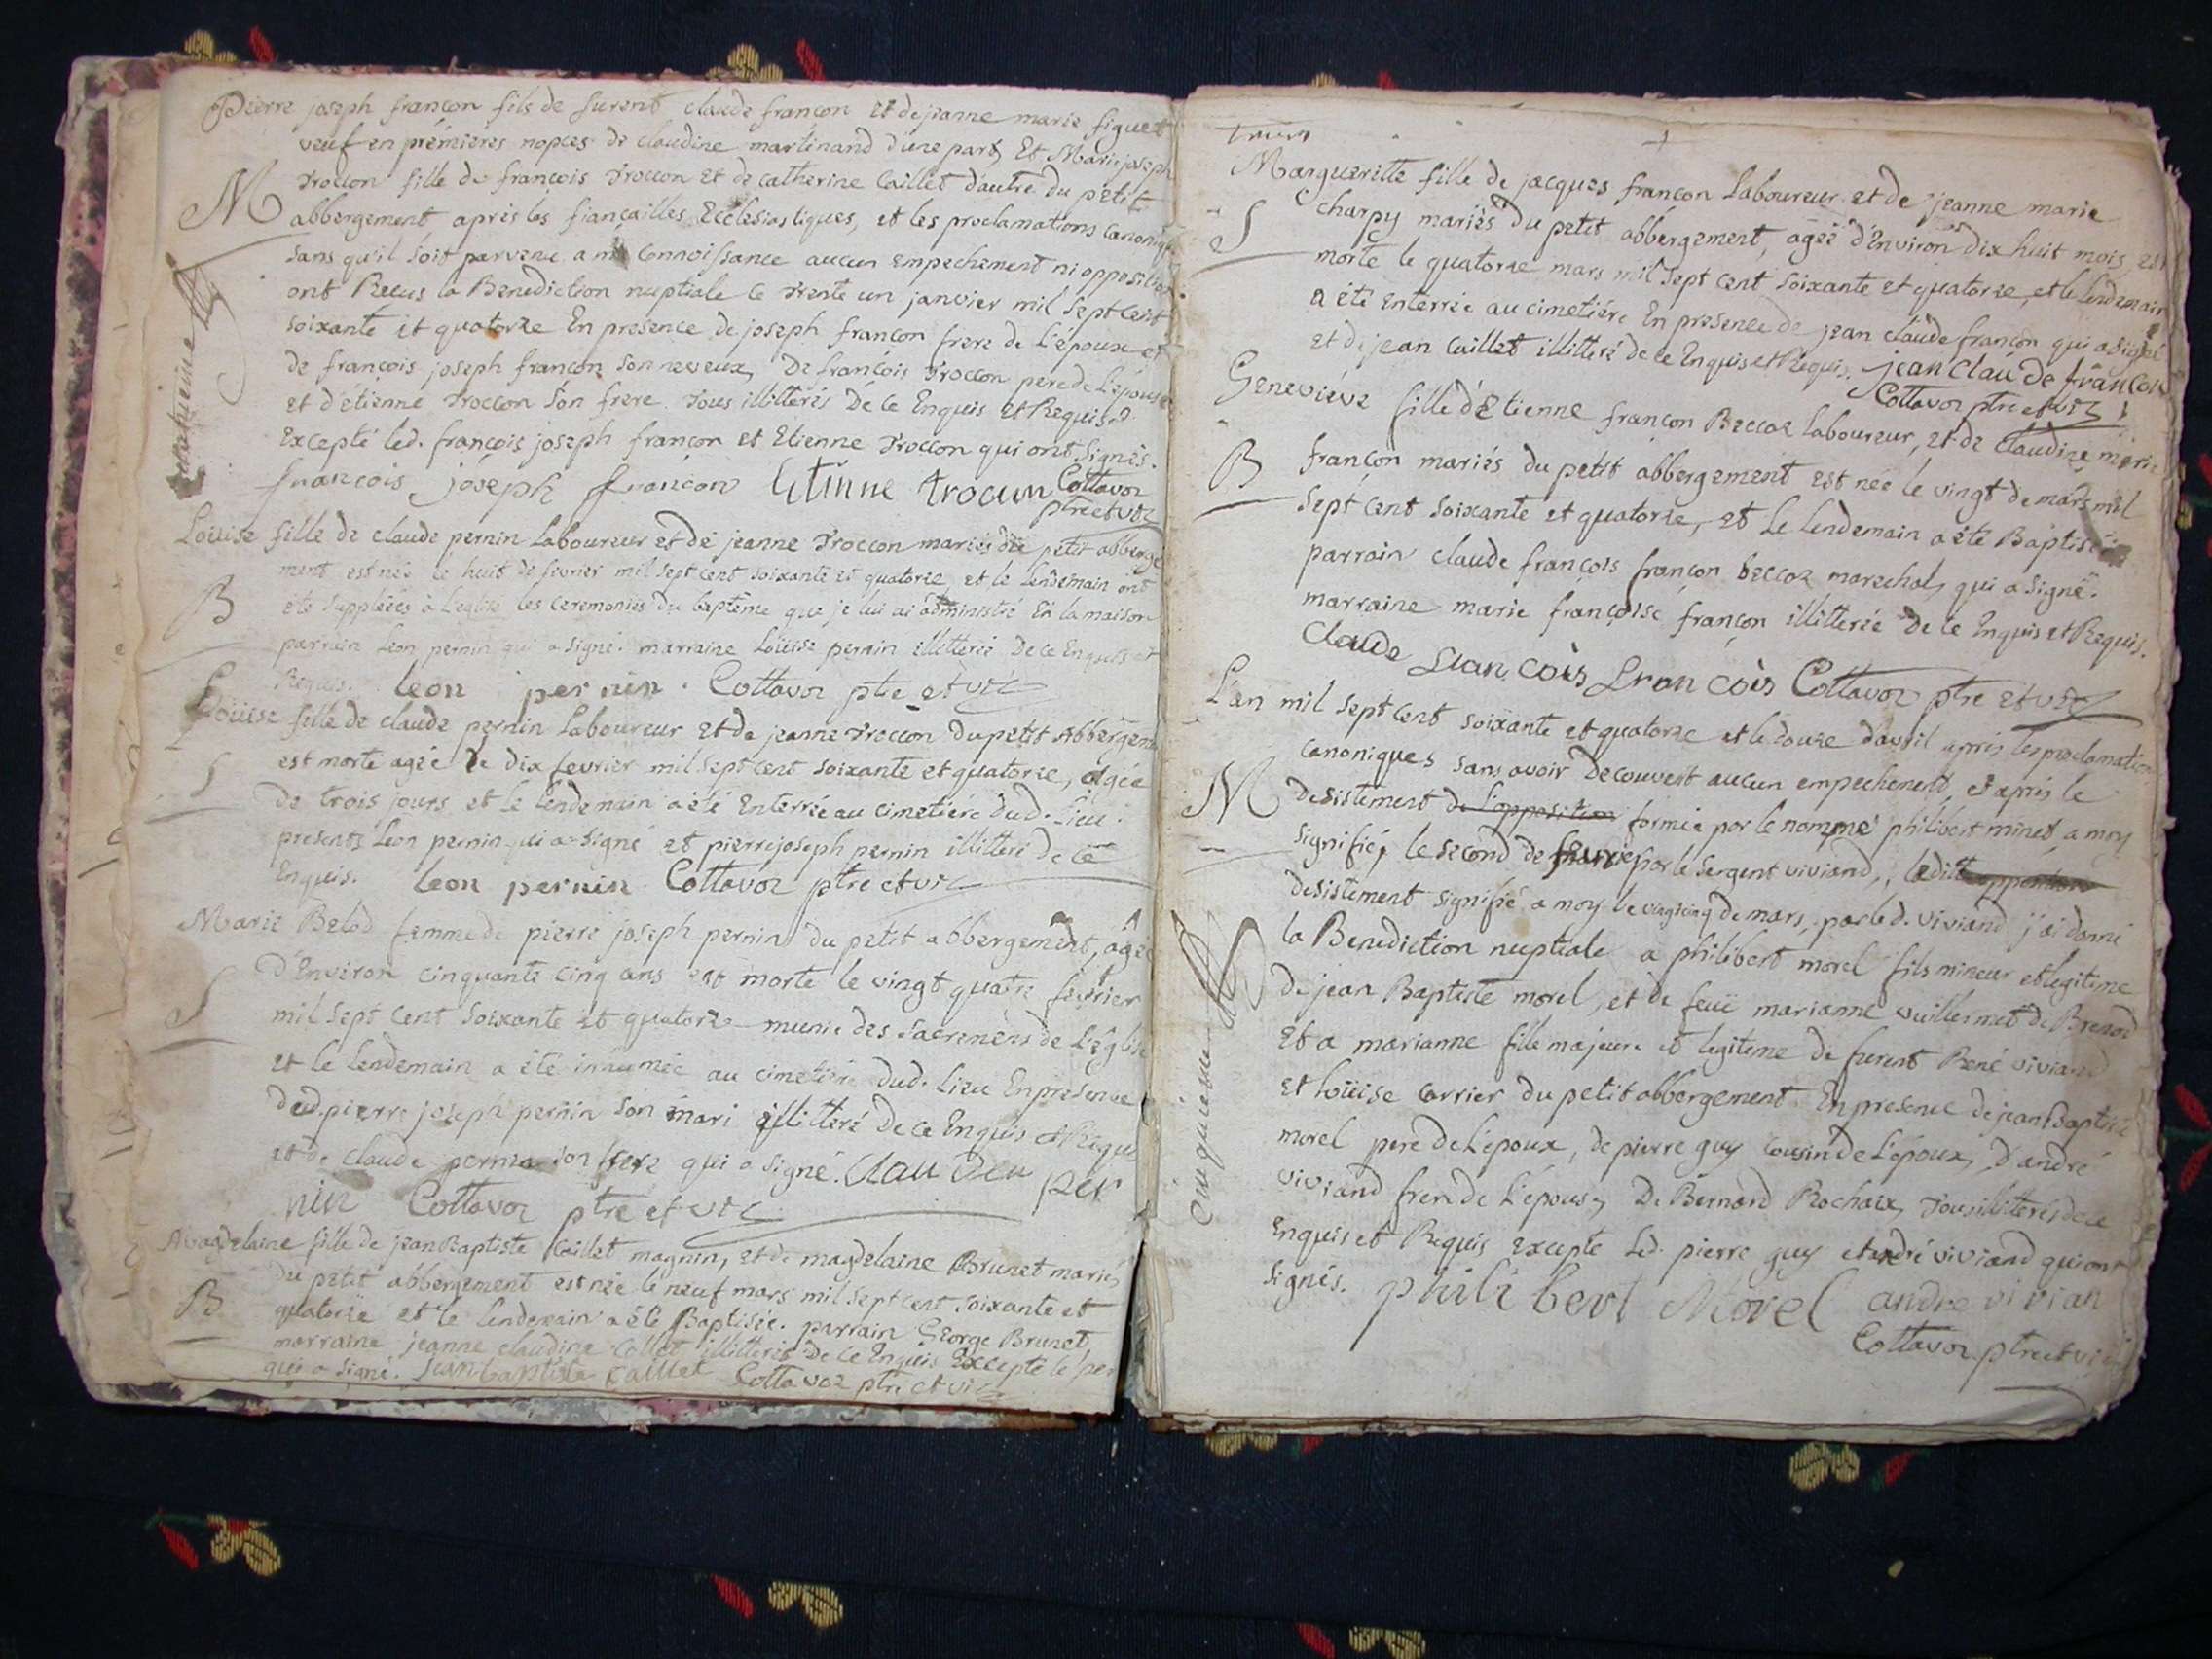 Pierre joseph françon fils de furent claude françon et de jeanne marie figuet
veuf en prémiéres nopces de claudine martinand d'une part, Et Marie joseph
M
Troccon fille de françois Troccon et de catherine Caillet d'autre du petit
abbergement, après les fiançailles Ecclesiastiques, et les proclamations canoniq
sans qu'il soit parvenu a ma connoissance aucun empechement ni oppositio
ont Recus la Benediction nuptiale le Trente un janvier mil sept cent
soixante et quatorze En presence de joseph françon frere de L'époux et
de françois joseph françon son neveux, De françois Troccon pere de L'épouse
et d'étienne Troccon son frere. Tous illitterés De ce Enquis et Requis
Excepté led. françois joseph françon et Etienne Troccon qui ont signés.
françois joseph françon Etinne trocum Cottavoz
ptre et vic
Loüise fille de claude pernin Laboureur et de jeanne Troccon mariés du petit abberge
ment est née le huit de fevrier mil sept cent soixante et quatorze, et le Lendemain ont
B
été suppléées à L'eglise les ceremonies du baptême que je lui ai administré En la maison
parrain Leon pernin qui a signé. marraine Loüise pernin illitterée De ce Enquis et
Requis. leon pernin. Cottavoz ptre et vic
Loüise fille de claude pernin Laboureur et de jeanne Troccon du petit Abbergem
S
est morte agée le dix fevrier mil sept cent soixante et quatorze, agée
de trois jours et le Lendemain a été Enterrée au cimetiére dud. Lieu.
presents Leon pernin qui a signé et pierre joseph pernin illitteré de ce
Enquis. leon pernin Cottavoz ptre et vic
Marie Belod femme de pierre joseph pernin du petit abbergement, agée
S
d'Environ cinquante cinq ans est morte le vingt quatre fevrier
mil sept cent soixante et quatorze munie des sacremens de L'églis
et le Lendemain a été inhumée au cimetiére dud. Lieu En presence
dud. pierre joseph pernin son mari illitteré De ce Enquis et Requi
et de claude pernin son frere qui a signé. Clau deu per
nin Cottavoz ptre et vic
Magdelaine fille de jean Baptiste Caillet magnin, et de magdelaine Brunet mariés
B
du petit abbergement est née le neuf mars mil sept cent soixante et
quatorze et le Lendemain a été Baptisée. parrain George Brunet,
marraine jeanne claudine Collet illitterés De ce Enquis Excepté le per
qui a signé. Jean baptiste caillet Cottavoz ptre et vic
Margueritte fille de jacques françon Laboureur et de jeanne marie
S
charpy mariés du petit abbergement, agée d'Environ dix huit mois, est
morte le quatorze mars mil sept cent soixante et quatorze, et le lendemain
a été Enterrée au cimetiére En presence de jean claude françon qui a signé
et de jean Caillet illitteré de ce Enquis et Requis. jean Claude françon
Cottavoz ptre et vic
Geneviéve fille d'Etienne françon Beccoz Laboureur, et de Claudine marie
B
françon mariés du petit abbergement est née le vingt de mars mil
sept cent soixante et quatorze, et le lendemain a été Baptisée
parrain claude françois françon beccoz marechal, qui a signé.
marraine marie françoise françon illitterée de ce Enquis et Requis.
Claude François François Cottavoz ptre et vic
L'an mil sept cent soixante et quatorze et le douze d'avril après les proclamation
canoniques sans avoir decouvert aucun empechement, et après le
M
desistement de L'opposition formée par le nommé philibert minet a moy
signifiée le second de fevrier par le sergent viviand, ledit opposition
desistement signifié a moy le vingt cinq de mars, par led. viviand j'ai donné
la Benediction nuptiale a philibert morel fils mineur et legitime
de jean Baptiste morel, et de feuë marianne vuillermet de Brenod
Et a marianne fille majeure et legitime de furent René viviand
et Loüise Carrier du petit abbergement En presence de jean Baptiste
morel pere de L'époux, de pierre guy cousin de L'époux, D'andré
viviand frere de L'épouse, De Bernard Rochaix, Tous illitterés de ce
Enquis et Requis Excepté Led. pierre guy et andré viviand qui ont
signés. philibert Morel andre vivian
Cottavoz ptre et vic